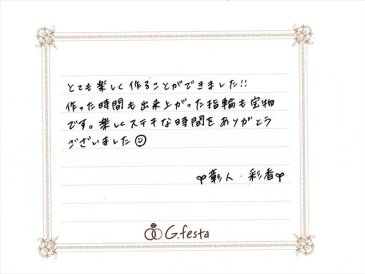 とても楽しく作ることができました!!
作った時間も出来上がった指輪も宝物
です。楽しくステキな時間をありがとう
ございました
彰人・彩香
G.festa